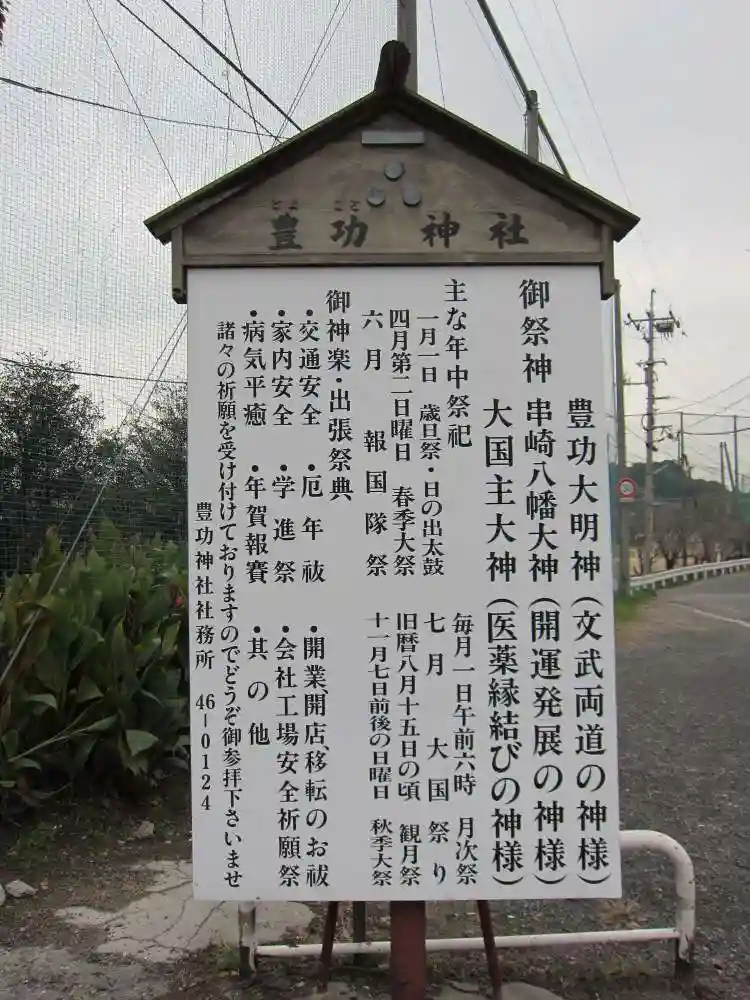 とよ こと
豊功神社
豊功大明神（文武両道の神様）
御祭神 串崎八幡大神（開運発展の神様）
大国主大神（医薬縁結びの神様）
主な年中祭祀
毎月一日午前六時 月次祭
一月一日 歳旦祭・日の出太鼓
七月 大国祭り
四月第二日曜日 春季大祭
旧暦八月十五日の頃 観月祭
六月 報国隊祭
十一月七日前後の日曜日 秋季大祭
御神楽・出張祭典
・交通安全 ・厄年祓 ・開業、開店、移転のお祓
・家内安全 ・学進祭 ・会社工場安全祈願祭
・病気平癒 ・年賀報賽 ・其の他
諸々の祈願を受け付けておりますのでどうぞ御参拝下さいませ
豊功神社社務所 46-0124